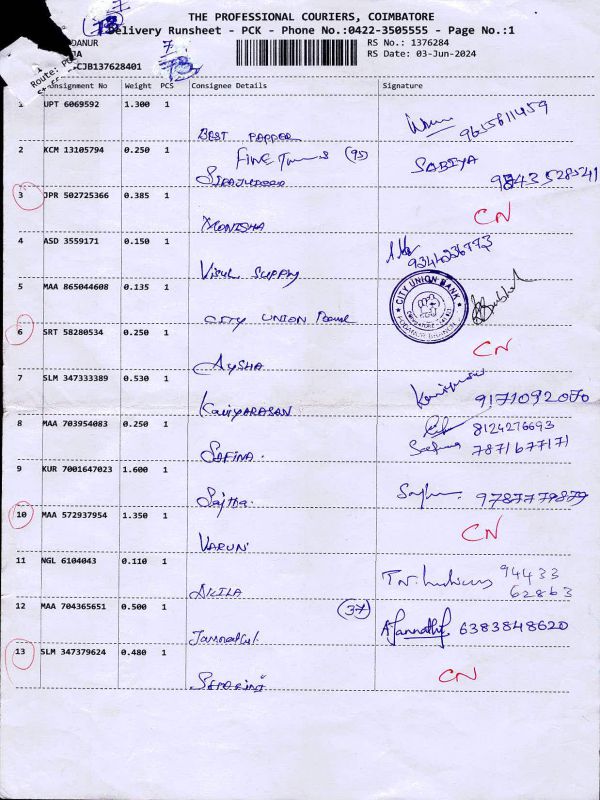 THE PROFESSIONAL COURIERS, COIMBATORE
Delivery Runsheet - PCK - Phone No.:0422-3505555 - Page No.:1
DANUR
RS No.: 1376284
RS Date: 03-Jun-2024
CJB137628401
Route:
Consignment No Weight PCS Consignee Details Signature
1 UPT 6069592 1.300 1
BEST PEPPER 9655611459
2 KCM 13105794 0.250 1
FINE (95) SABIYA
3 JPR 502725366 0.385 1
MONISHA CN
4 ASD 3559171 0.150 1
SUPPLY
5 MAA 865044608 0.135 1
CITY UNION
CITY UNION BANK
6 SRT 58280534 0.250 1
AYSHA CN
7 SLM 347333389 0.530 1
KAVIYARASAN 9171092070
8 MAA 703954083 0.250 1
8124276693
SAFINA. 7871677171
9 KUR 7001647023 1.600 1
Sajtha. 9787779879
10 MAA 572937954 1.350 1
VARUN CN
11 NGL 6104043 0.110 1
AKILA 94433
62863
12 MAA 704365651 0.500 1
(37) 6383848620
13 SLM 347379624 0.480 1
CN